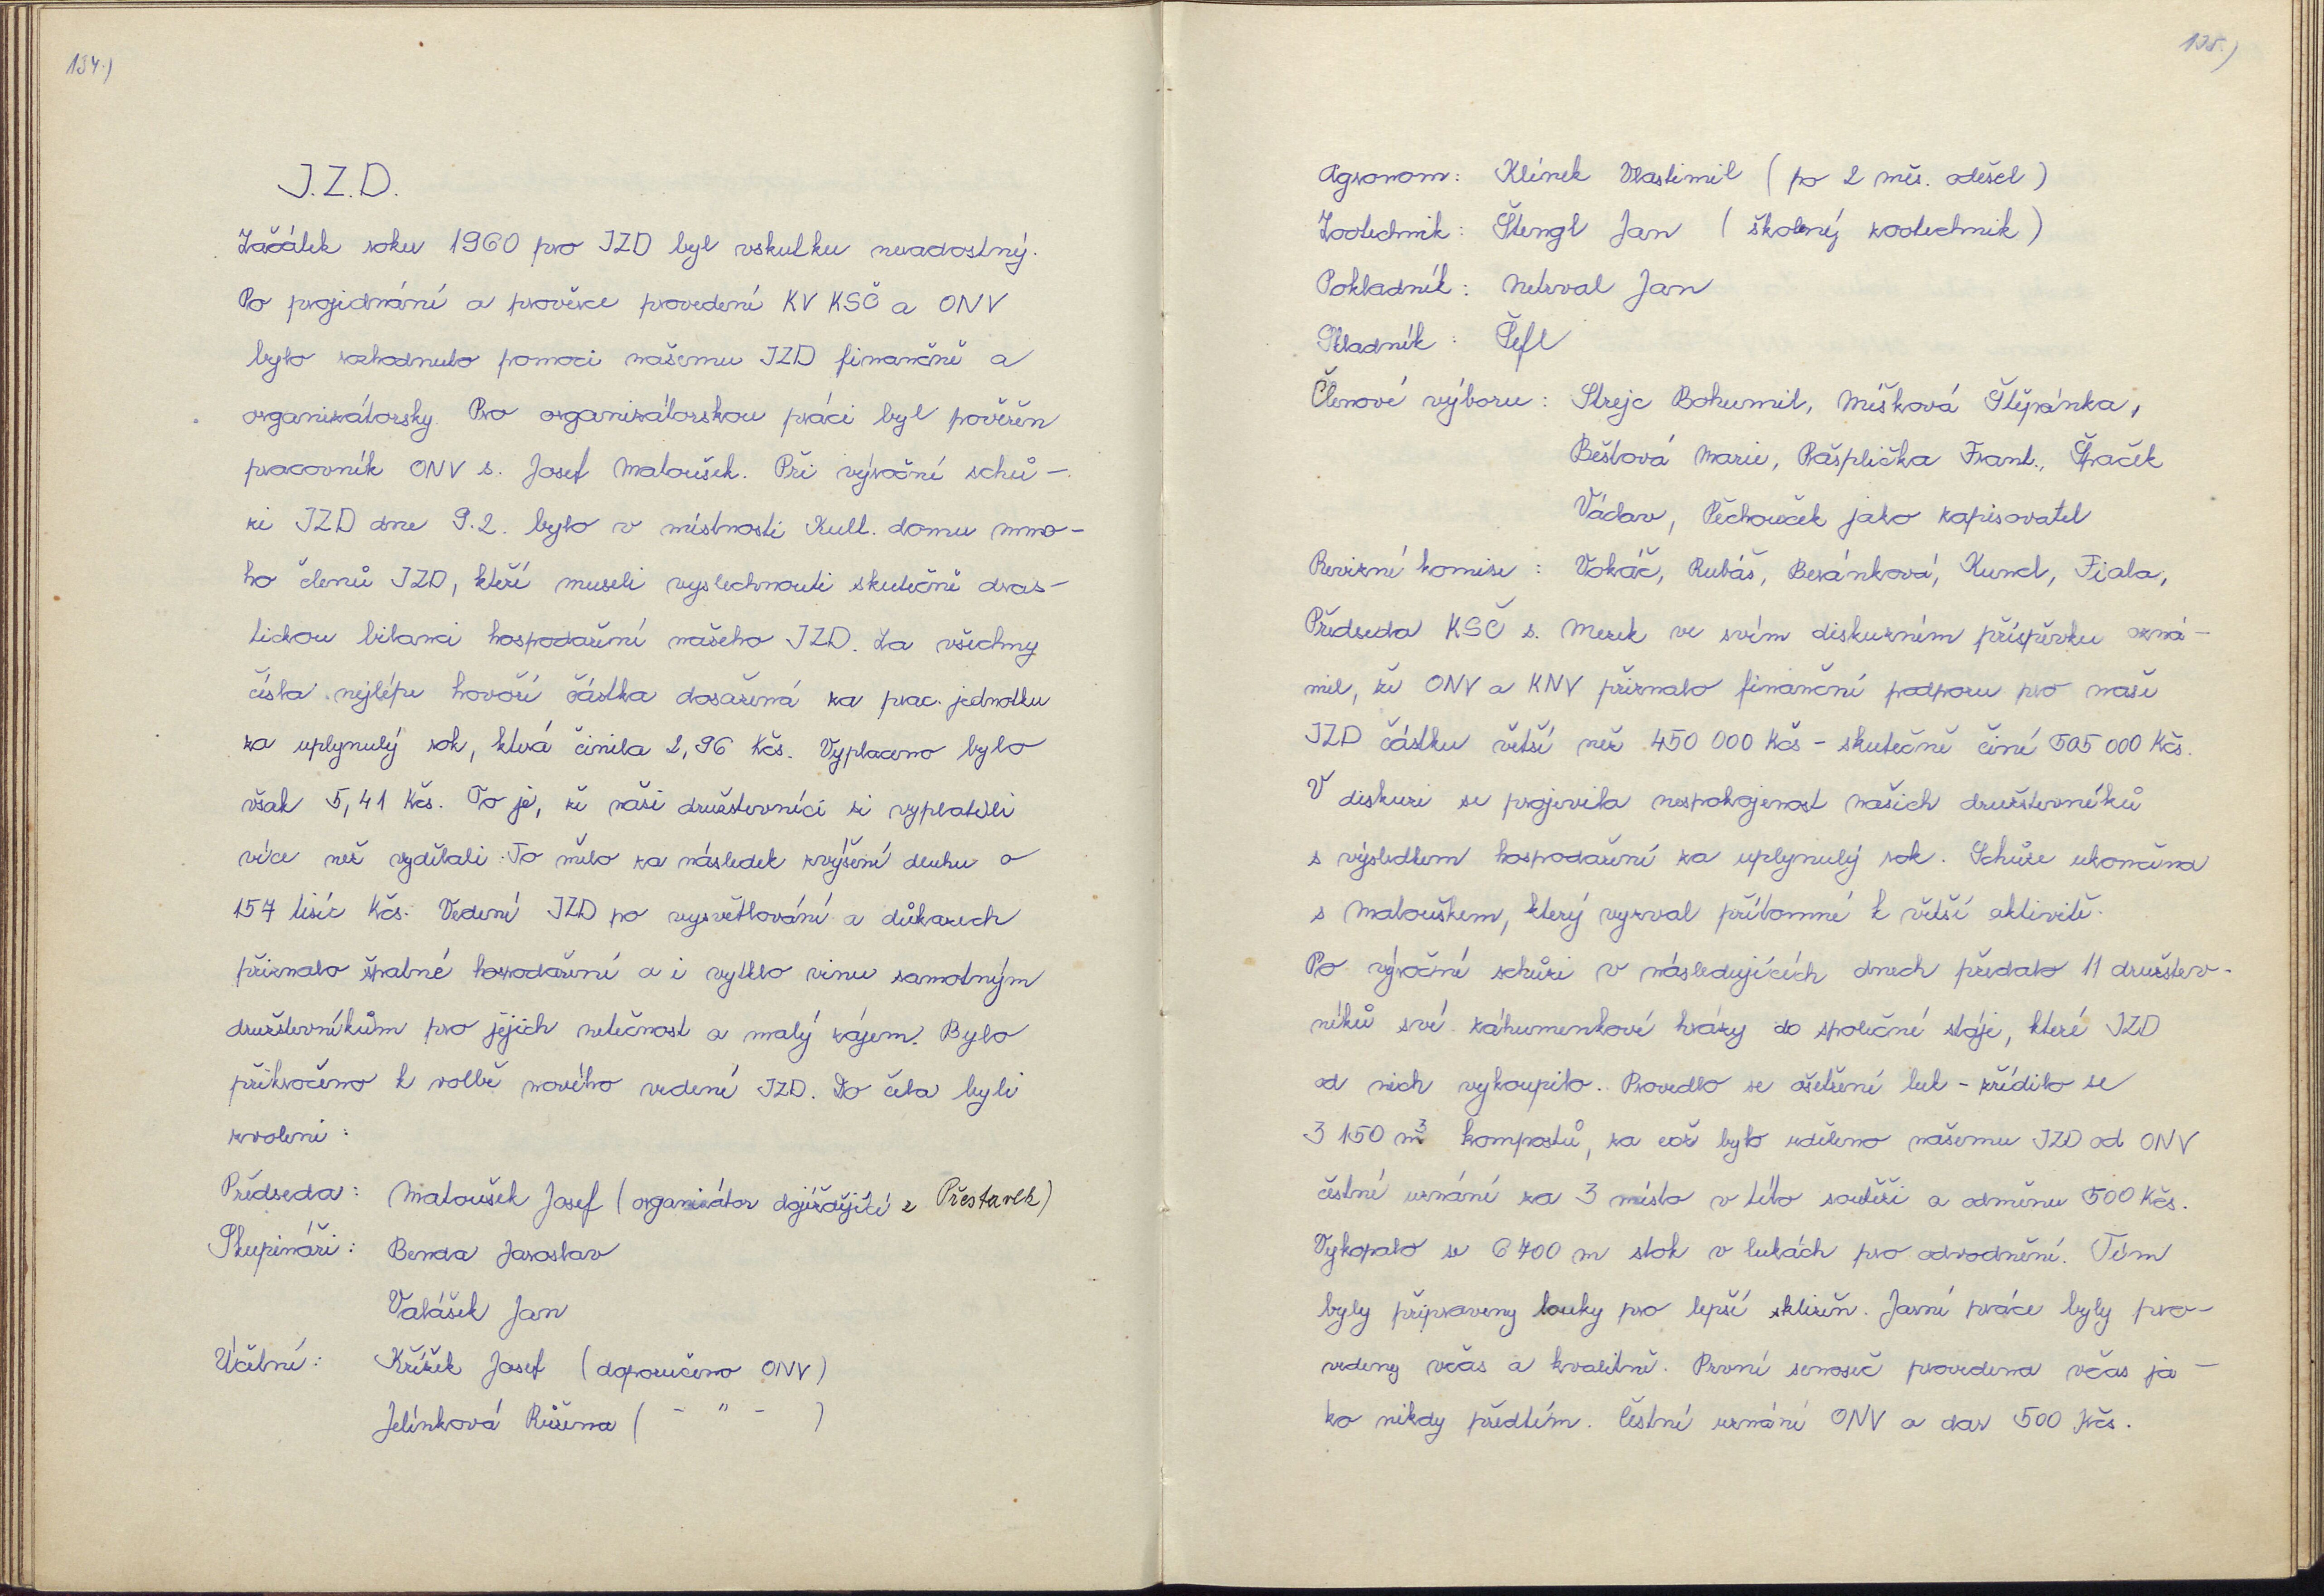 134.)
J.Z.D.
Začátek roku 1960 pro JZD byl vskutku neradostný.
Po projednání a prověrce provedení KV KSČ a ONV
bylo rozhodnuto pomoci našemu JZD finančně a
organizátorsky. Pro organizátorskou práci byl pověřen
pracovník ONV s. Josef Matoušek. Při výroční schů-
zi JZD dne 9.2. bylo v místnosti Kult. domu mno-
ho členů JZD, kteří museli vyslechnouti skutečně dras-
tickou bilanci hospodaření našeho JZD. Za všechny
čísla nejlépe hovoří částka dosažená za prac. jednotku
za uplynulý rok, která činila 2,96 Kčs. Vyplaceno bylo
však 5,41 Kčs. To je, že naši družstevníci si vyplatili
více než vydělali. To mělo za následek zvýšení dluhu o
157 tisíc Kčs. Vedení JZD po vysvětlování a důkazech
přiznalo špatné hospodaření a i vytklo vinu samotným
družstevníkům pro jejich netečnost a malý zájem. Bylo
přikročeno k volbě nového vedení JZD. Do čela byli
zvoleni:
Předseda: Matoušek Josef (organizátor dojíždějící z Přestavlk)
Skupináři: Benda Jaroslav
Valášek Jan
Účetní: Křížek Josef (doporučeno ONV)
Jelínková Růžena ( - " - )
135.)
Agronom: Klínek Vlastimil (po 2 měs. odešel)
Zootechnik: Štengl Jan (školený zootechnik)
Pokladník: Netrval Jan
Skladník: Šefl
Členové výboru: Strejc Bohumil, Míšková Štěpánka,
Beštová Marie, Rašplička Frant., Špaček
Václav, Pěchouček jako zapisovatel
Revizní komise: Vokáč, Rubáš, Beránková, Kuncl, Fiala,
Předseda KSČ s. Merek ve svém diskuzním příspěvku ozná-
mil, že ONV a KNV přiznalo finanční podporu pro naše
JZD částku větší než 450 000 Kčs - skutečně činí 505 000 Kčs.
V diskuzi se projevila nespokojenost našich družstevníků
s výsledkem hospodaření za uplynulý rok. Schůze ukončena
s Matouškem, který vyzval přítomné k větší aktivitě.
Po výroční schůzi v následujících dnech předalo 11 družstev-
níků své záhumenkové krávy do společné stáje, které JZD
od nich vykoupilo. Provedlo se ošetření luk - zřídilo se
3 150 m³ kompostů, za což bylo uděleno našemu JZD od ONV
čestné uznání za 3 místo v této soutěži a odměnu 500 Kčs.
Vykopalo se 6 400 m stok v lukách pro odvodnění. Tím
byly připraveny louky pro lepší sklizeň. Jarní práce byly pro-
vedeny včas a kvalitně. První senoseč provedena včas ja-
ko nikdy předtím. Čestné uznání ONV a dar 500 Kčs.